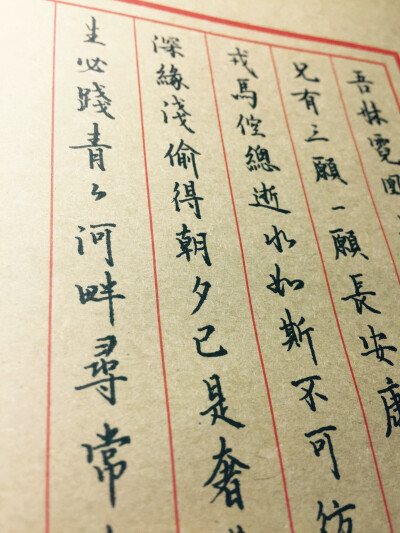 吾妹霓凰
兄有三願一願長安康
戎馬倥總逝水如斯不可彷
深緣淺偷得朝夕已是奢
生必踐青々河畔尋常